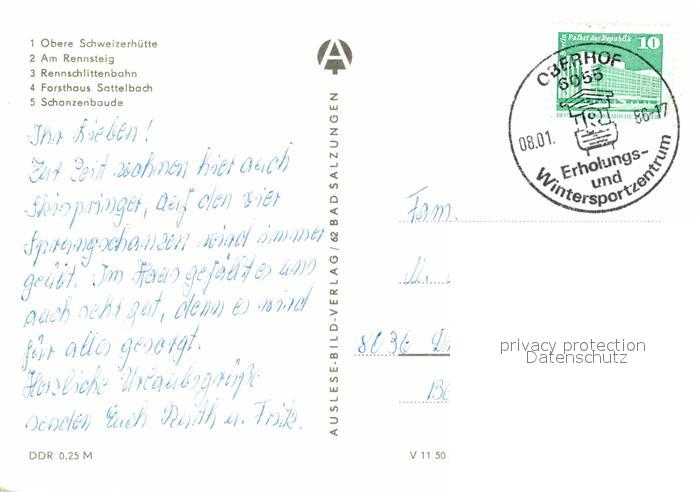 1 Obere Schweizerhütte
2 Am Rennsteig
3 Rennschlittenbahn
4 Forsthaus Sattelbach
5 Schanzenbaude
Ihr Lieben!
Zur Zeit wohnen hier auch
Skispringer, auf den vier
Sprungschanzen wird immer
geübt. Im Haus gefällt es uns
auch sehr gut, denn es wird
für alles gesorgt.
Herzliche Urlaubsgrüße
senden Euch Ruth u. Fritz.
DDR 0,25 M
AUSLESE-BILD-VERLAG/62 BAD SALZUNGEN
V 11 50
Palast der Republik 10
OBERHOF
6055
08.01. 86-17
Erholungs-
und
Wintersportzentrum
Fam.
8036
privacy protection
Datenschutz